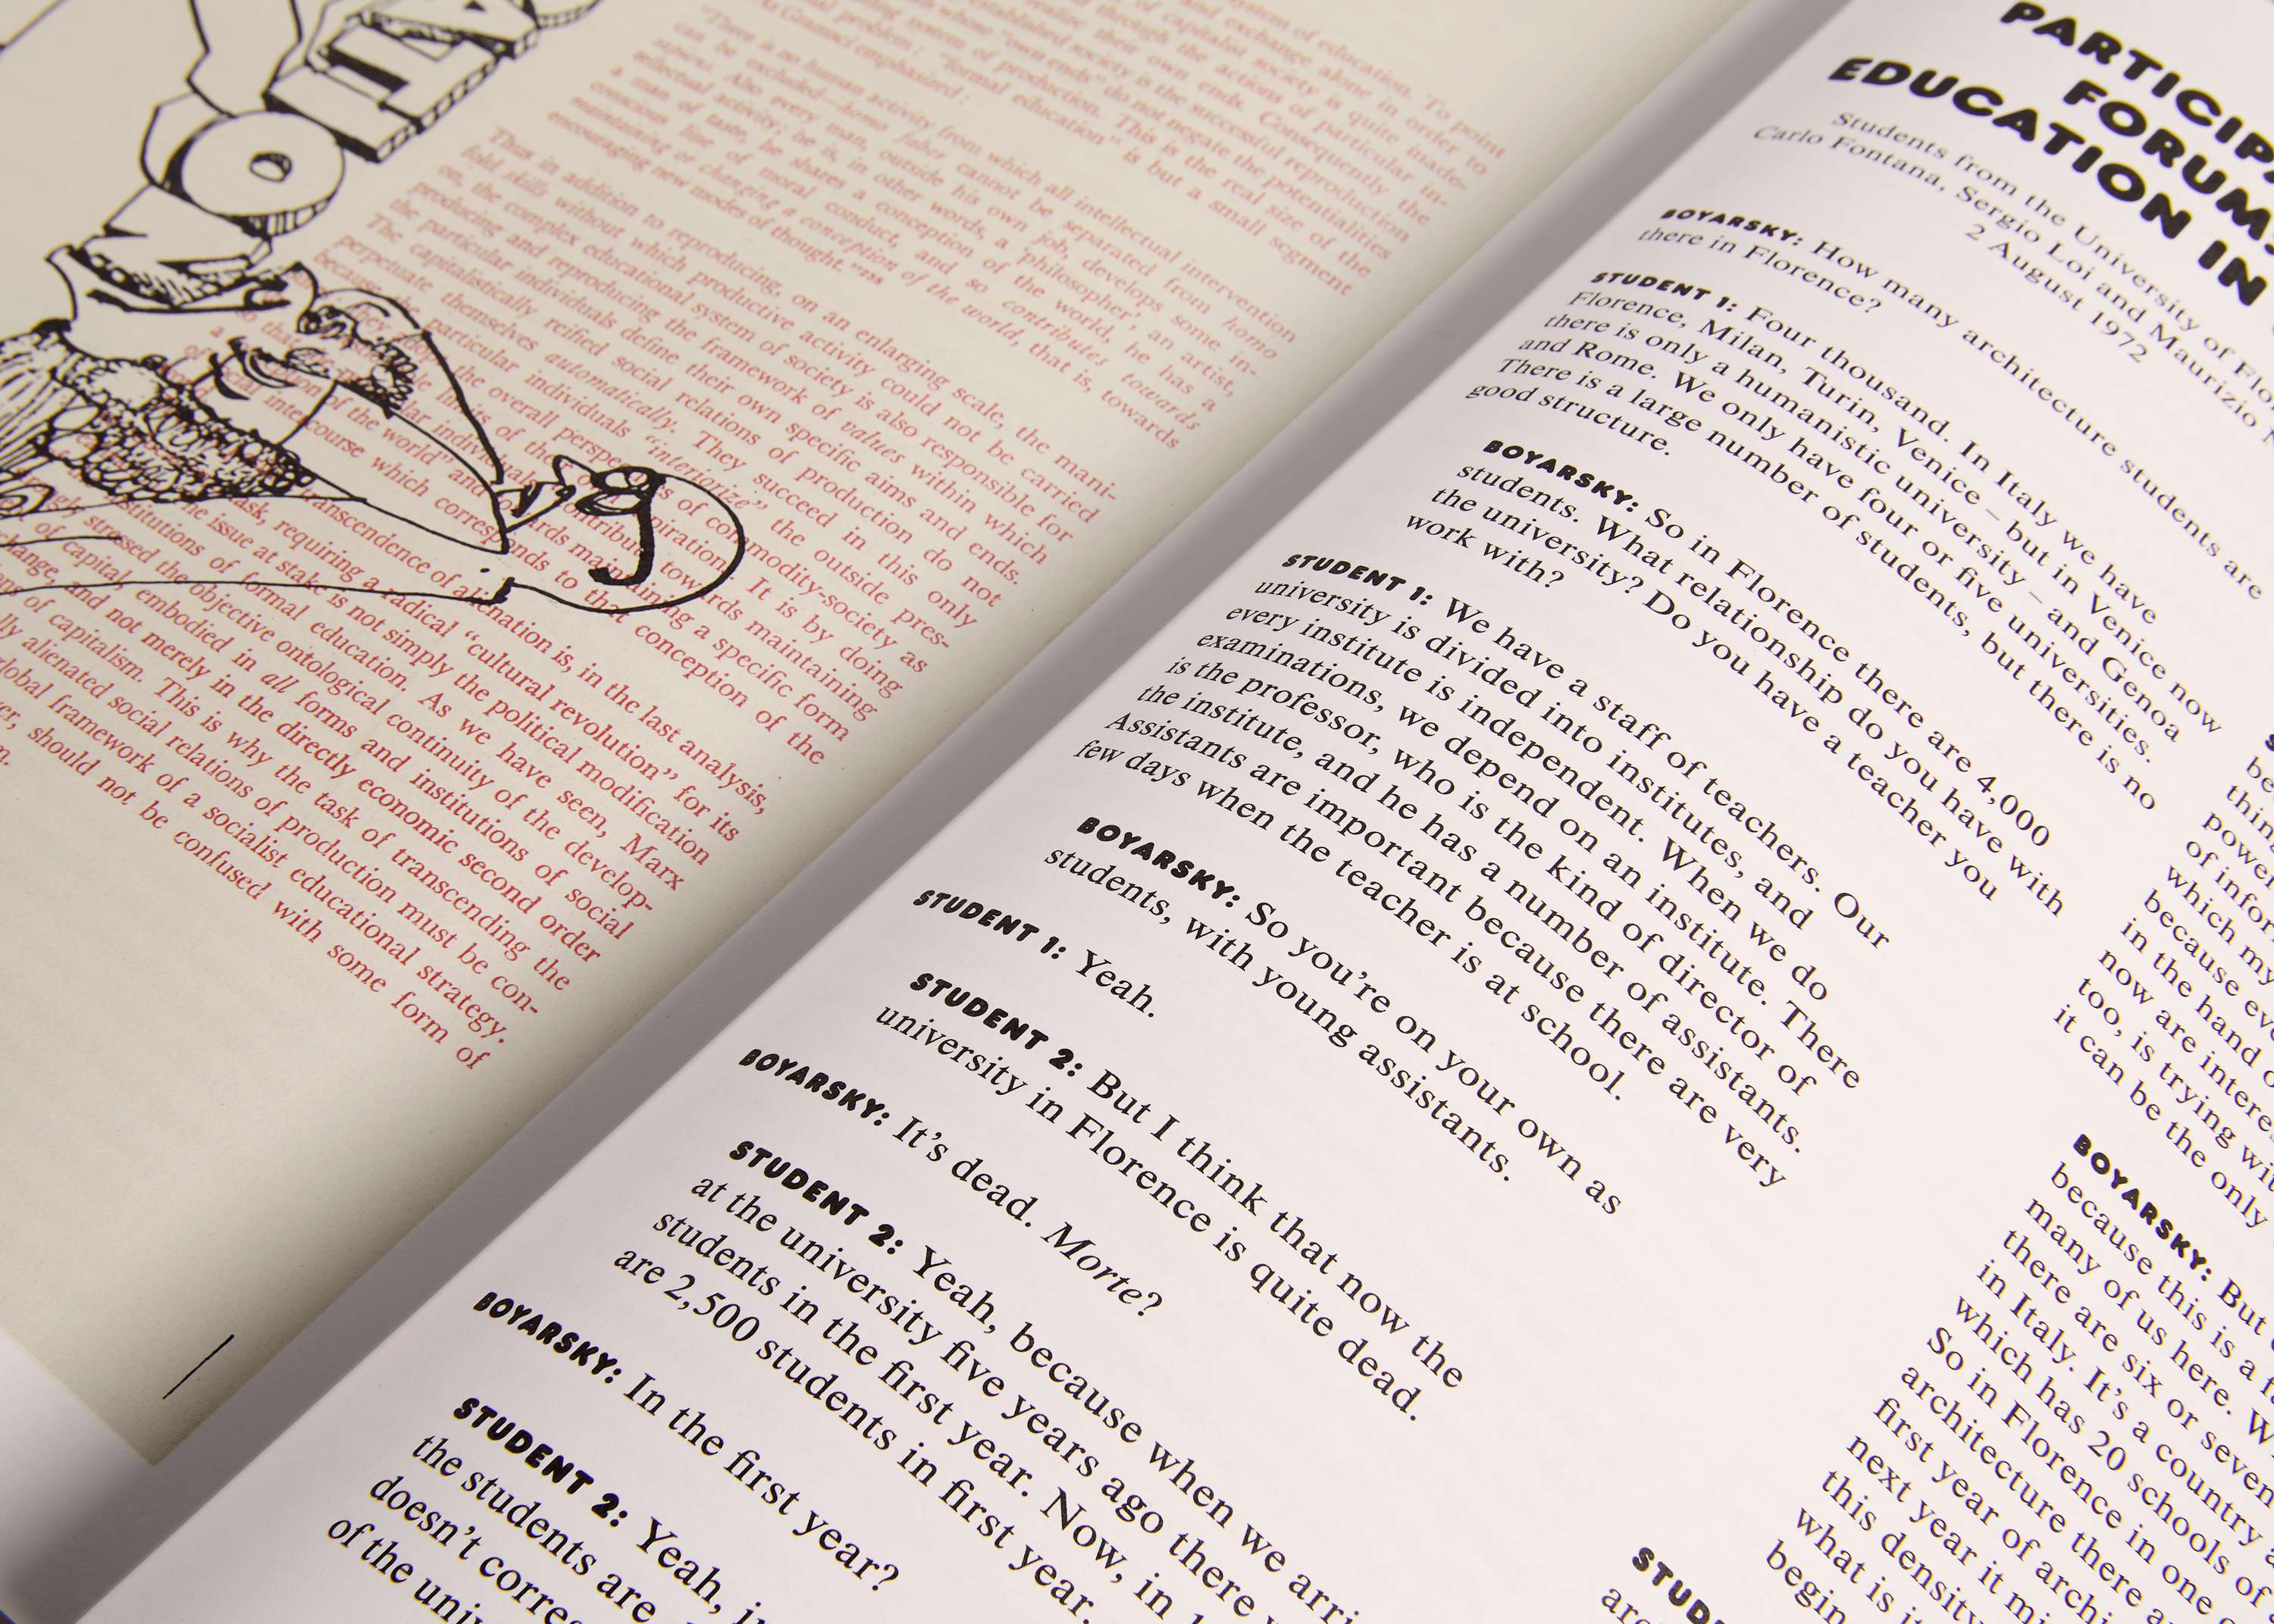 system of education. To point
and exchange alone in order to
of capitalist society is quite inade-
through the actions of particular in-
their own ends. Consequently the
established society is the successful reproduction
"own ends" do not negate the potentialities
system of production. This is the real size of the
problem: "formal education" is but a small segment
As Gramsci emphasized:
"There is no human activity from which all intellectual intervention
can be excluded—homo faber cannot be separated from homo
sapiens. Also every man, outside his own job, develops some in-
tellectual activity; he is, in other words, a 'philosopher', an artist,
a man of taste, he shares a conception of the world, he has a
conscious line of moral conduct, and so contributes towards
maintaining or changing a conception of the world, that is, towards
encouraging new modes of thought."
Thus in addition to reproducing, on an enlarging scale, the mani-
fold skills without which productive activity could not be carried
on, the complex educational system of society is also responsible for
producing and reproducing the framework of values within which
the particular individuals define their own specific aims and ends.
The capitalistically reified social relations of production do not
perpetuate themselves automatically. They succeed in this only
because the particular individuals "interiorize" the outside pres-
they the overall perspectives of commodity-society as
limits of their aspirations. It is by doing
so that individuals contribute towards maintaining
a of the world" and towards maintaining a specific form
of social intercourse which corresponds to that conception of the
transcendence of alienation is, in the last analysis,
task, requiring a radical "cultural revolution" for its
the issue at stake is not simply the political modification
institutions of formal education. As we have seen, Marx
stressed the objective ontological continuity of the develop-
of capital, embodied in all forms and institutions of social
and not merely in the directly economic second order
of capitalism. This is why the task of transcending the
alienated social relations of production must be con-
global framework of a socialist educational strategy.
should not be confused with some form of
PARTICIPA
FORUM:
EDUCATION IN
Students from the University of Flor
Carlo Fontana, Sergio Loi and Maurizio
2 August 1972
BOYARSKY: How many architecture students are
there in Florence?
STUDENT 1: Four thousand. In Italy we have
Florence, Milan, Turin, Venice – but in Venice now
there is only a humanistic university – and Genoa
and Rome. We only have four or five universities.
There is a large number of students, but there is no
good structure.
BOYARSKY: So in Florence there are 4,000
students. What relationship do you have with
the university? Do you have a teacher you
work with?
STUDENT 1: We have a staff of teachers. Our
university is divided into institutes, and
every institute is independent. When we do
examinations, we depend on an institute. There
is the professor, who is the kind of director of
the institute, and he has a number of assistants.
Assistants are important because there are very
few days when the teacher is at school.
BOYARSKY: So you're on your own as
students, with young assistants.
STUDENT 1: Yeah.
STUDENT 2: But I think that now the
university in Florence is quite dead.
BOYARSKY: It's dead. Morte?
STUDENT 2: Yeah, because when we arri
at the university five years ago there
students in the first year. Now, in
are 2,500 students in first year.
BOYARSKY: In the first year?
STUDENT 2: Yeah,
the students are
doesn't corre
of the uni
be
thin
power
of infor
which my
because eve
in the hand o
now are intere
too, is trying wi
it can be the only
BOYARSKY: But
because this is a
many of us here. W
there are six or seven
in Italy. It's a country
which has 20 schools of
So in Florence in one
architecture there
first year of archi
next year it mi
this density
what is i
begin
STUD
arc